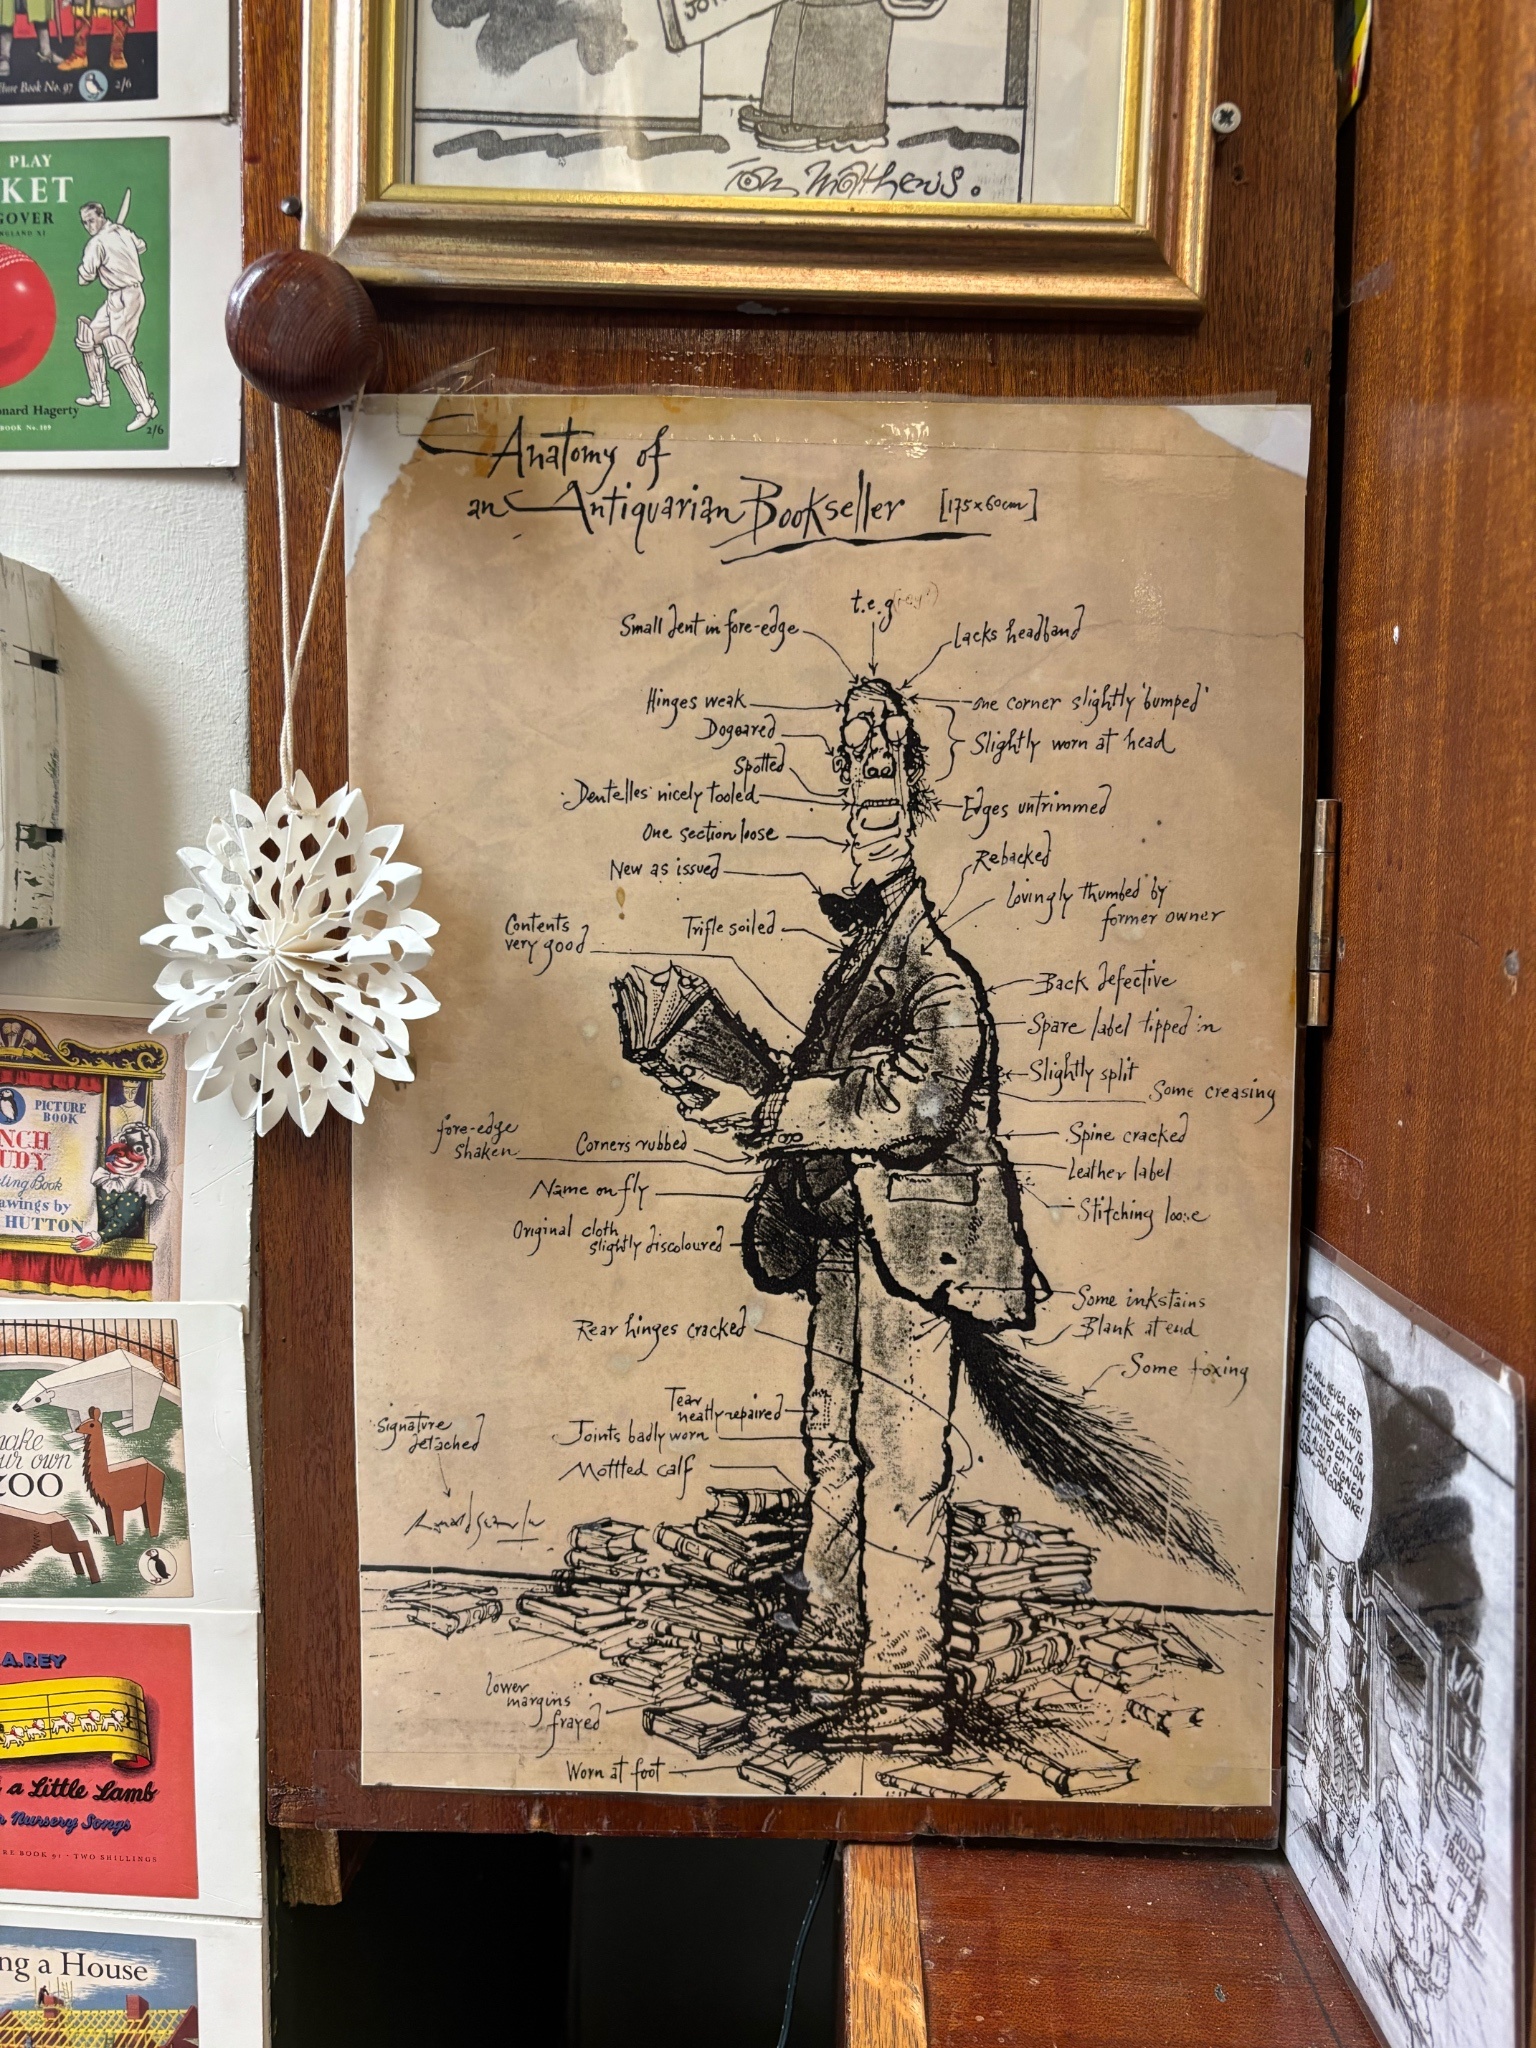 Tom Mathews.
ture Book No. 97
2/6
PLAY
KET
GOVER
NGLAND XI
onard Hagerty
BOOK No. 105
2/6
PICTURE
BOOK
NCH
UDY
ling Book
awings by
HUTTON
make
our own
ZOO
A. REY
a Little Lamb
r Nursery Songs
RE BOOK 91 · TWO SHILLINGS
ng a House
Anatomy of
an Antiquarian Bookseller [175x60cm]
t.e.g
Small dent in fore-edge
Lacks headband
Hinges weak
one corner slightly 'bumped'
Dogeared
Slightly worn at head
Spotted
Dentelles nicely tooled
Edges untrimmed
One section loose
Rebacked
New as issued
Lovingly thumbed by
former owner
Contents
very good
Trifle soiled
Back defective
Spare label tipped in
Slightly split
Some creasing
fore-edge
shaken
Corners rubbed
Spine cracked
Leather label
Name on fly
Stitching loose
Original cloth
slightly discoloured
Some inkstains
Blank at end
Rear hinges cracked
Some foxing
Tear
neatly repaired
Signature
detached
Joints badly worn
Mottled calf
Ronald Searle
lower
margins
frayed
Worn at foot
WE WILL NEVER GET
A CHANCE LIKE THIS
AGAIN... NOT ONLY IS
IT A LIMITED EDITION
IT'S ALSO A SIGNED
COPY... FOR GOD'S SAKE!
HOLY
BIBLE